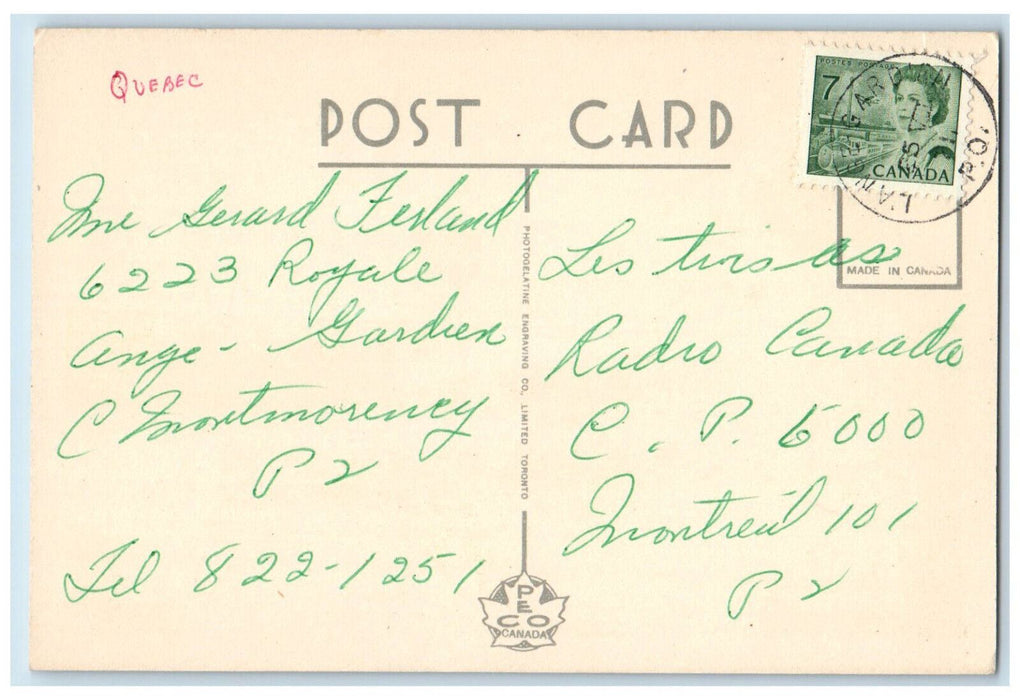 QUEBEC
POST CARD
POSTES POSTAGE
7
CANADA
L'ANGE GARDIEN
P.Q.
MADE IN CANADA
Mme Gerard Ferland
6223 Royale
Ange-Gardien
C Montmorency
P2
Tel 822-1251
PHOTOGELATINE ENGRAVING CO., LIMITED TORONTO
Les trois as
Radio Canada
C. P. 6000
Montreal 101
P2
PECO
CANADA